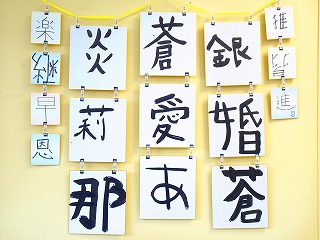 推皆進
銀婚蒼
蒼愛あ
火莉那
楽継早恩